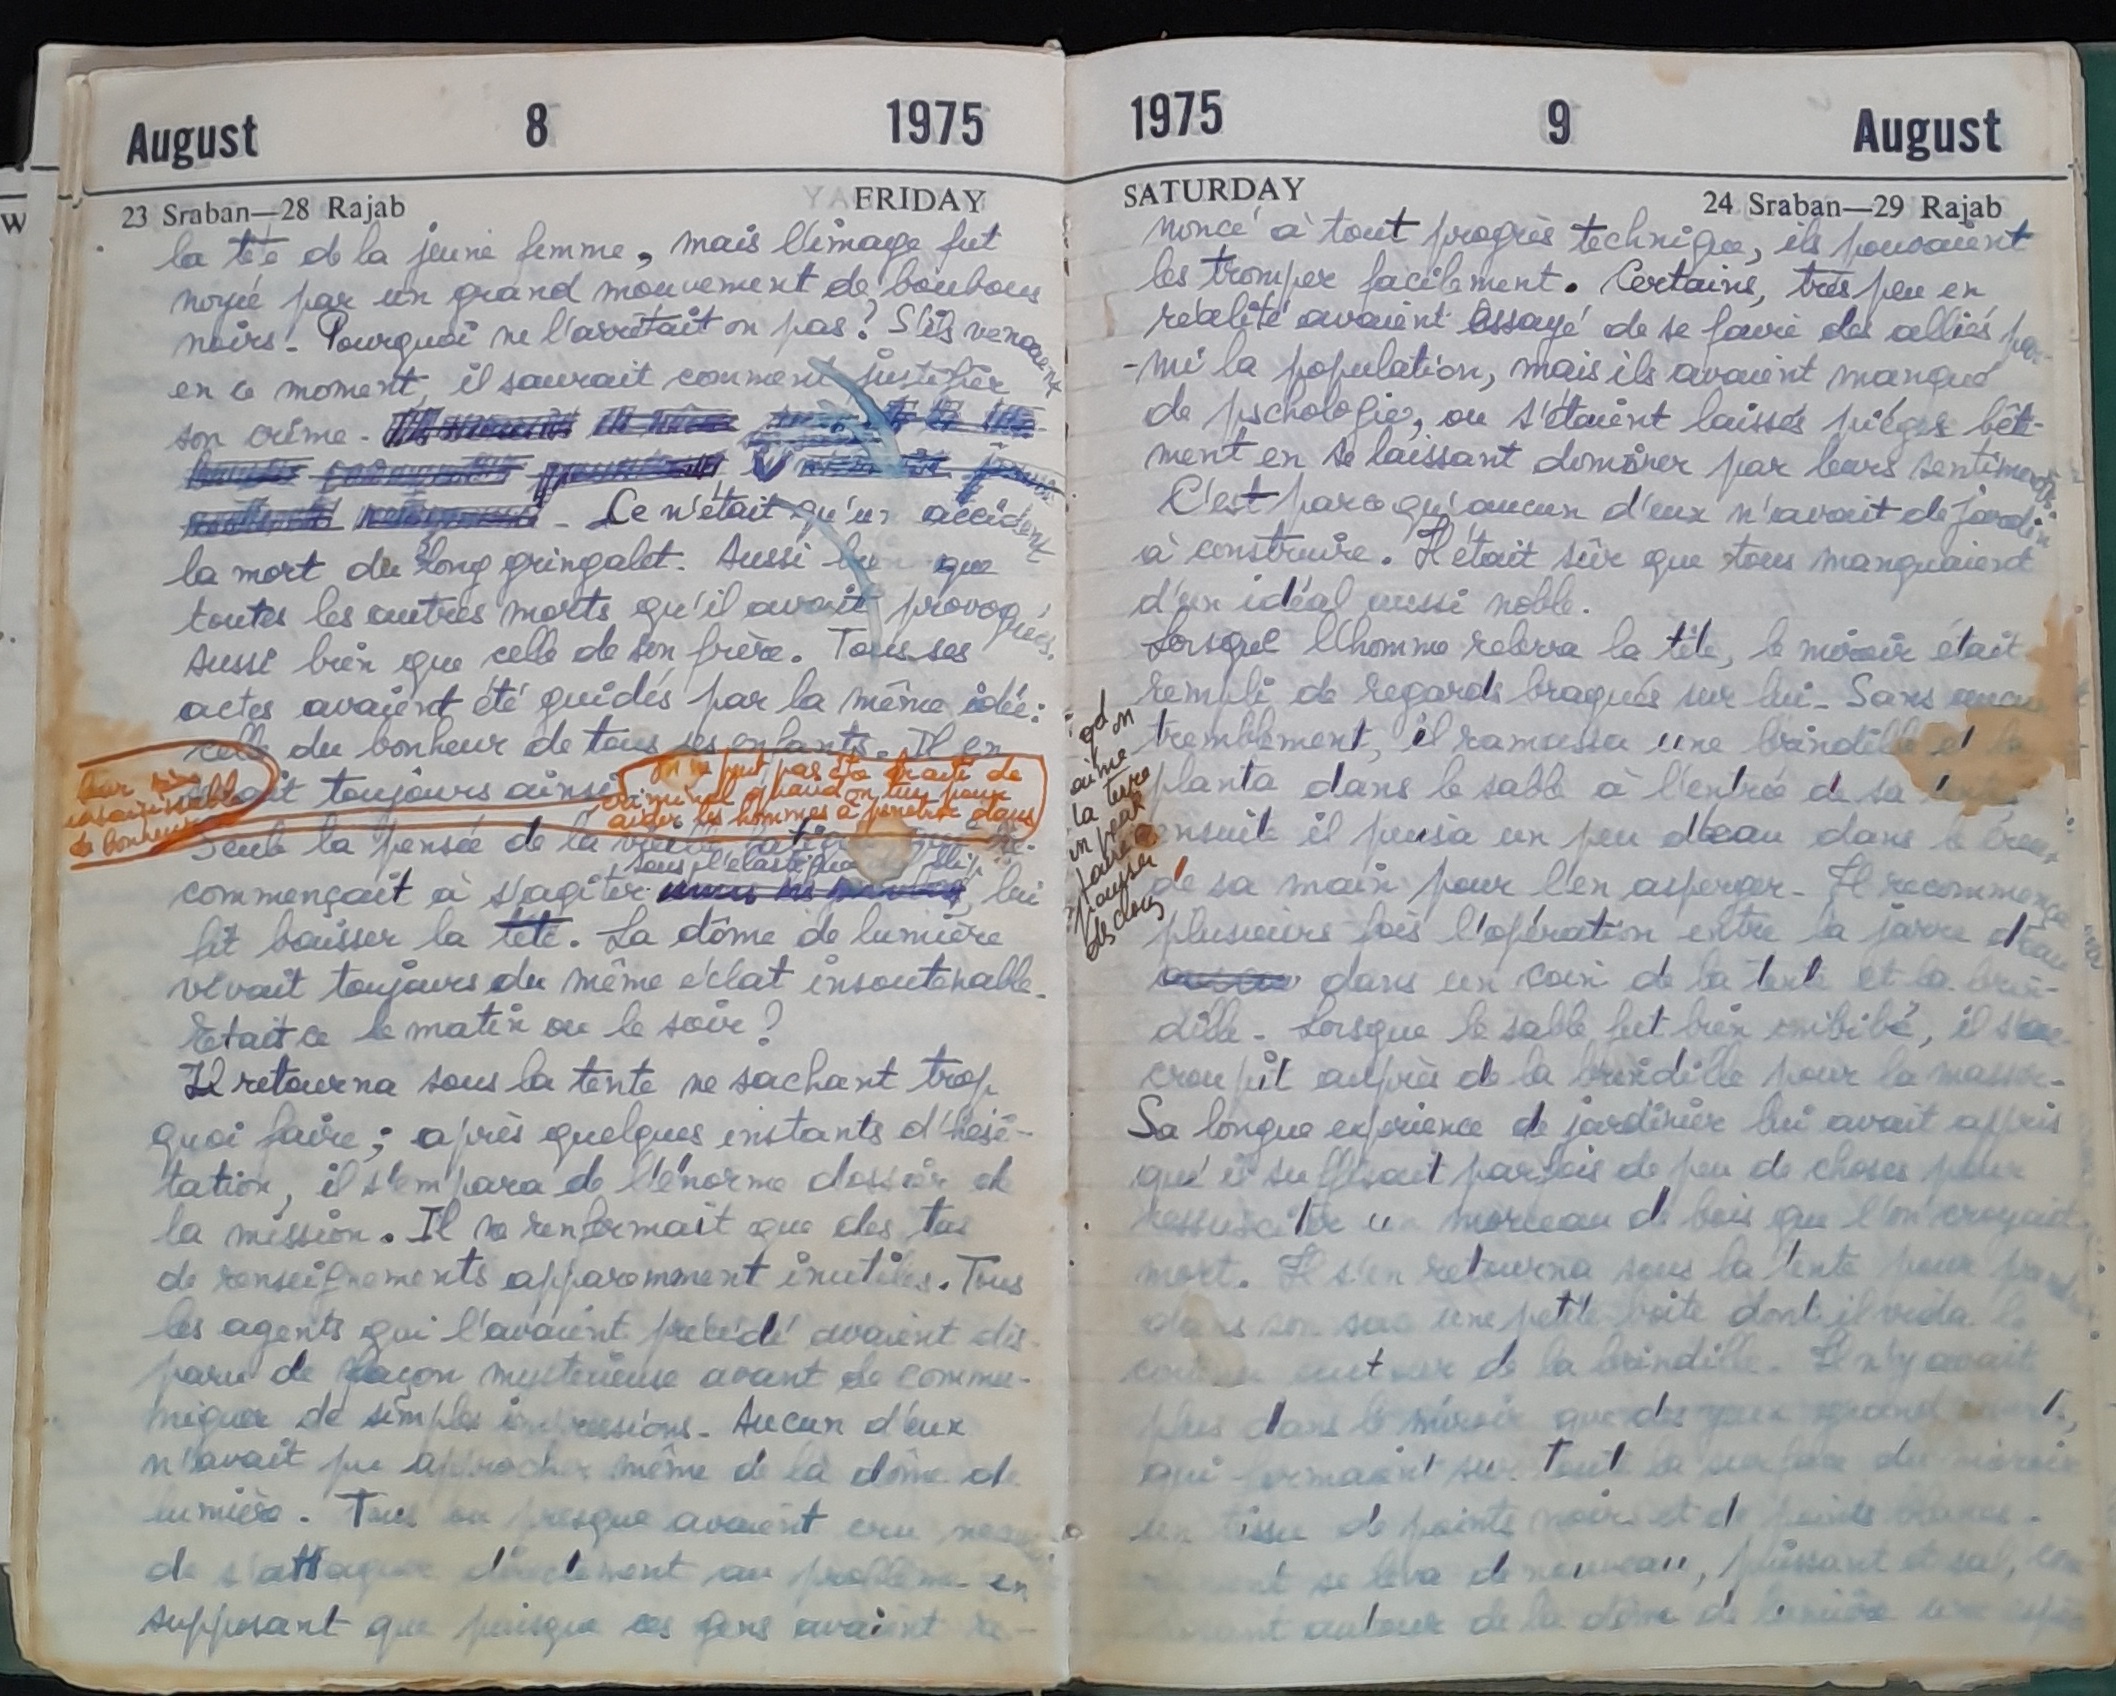 August 8 1975
23 Sraban—28 Rajab FRIDAY
la tête de la jeune femme, mais l'image fut
noyée par un grand mouvement de boubous
noirs. Pourquoi ne l'arrêtait on pas? S'ils venaient
en ce moment, il saurait comment justifier
son crime.
Ce n'était qu'un accident
la mort du long gringalet. Aussi bien que
toutes les autres morts qu'il avait provoquées.
Aussi bien que celle de son frère. Tous ses
actes avaient été guidés par la même idée:
celle du bonheur de tous ses enfants. Il en
était toujours ainsi
insaisissable
de bonheur
On ne peut pas être traité de
criminel quand on tue pour
aider les hommes à pénétrer dans
Seule la pensée de la vieille qui re-
sous l'élastique du slip
commençait à s'agiter, lui
fit baisser la tête. La dôme de lumière
vivait toujours du même éclat insoutenable.
Etait ce le matin ou le soir?
Il retourna sous la tente ne sachant trop
quoi faire; après quelques instants d'hési-
tation, il s'empara de l'énorme dossier de
la mission. Il ne renfermait que des tas
de renseignements apparemment inutiles. Tous
les agents qui l'avaient précédé avaient dis-
paru de façon mysterieuse avant de commu-
niquer de simples impressions. Aucun d'eux
n'avait pu approcher même de la dôme de
lumière. Tous ou presque avaient cru
de s'attaquer directement au problème en
supposant que puisque ces gens avaient re-
1975 9 August
SATURDAY 24 Sraban—29 Rajab
noncé à tout progrès technique, ils pouvaient
les tromper facilement. Certains, très peu en
réalité avaient essayé de se faire des alliés par-
-mi la population, mais ils avaient manqué
de pschologie, ou s'étaient laissés piégés bête-
ment en se laissant dominer par leurs sentiments
C'est parce qu'aucun d'eux n'avait de jardin
à construire. Il était sûr que tous manquaient
d'un idéal aussi noble.
Lorsque l'homme releva la tête, le miroir était
rempli de regards braqués sur lui. Sans aucun
tremblement, il ramassa une brindille et la
planta dans le sable à l'entrée de sa tente
ensuite il puisa un peu d'eau dans le creux
de sa main pour l'en asperger. Il recommença
plusieurs fois l'opération entre la jarre d'eau
dans un coin de la tente et la brin-
dille. Lorsque le sable fut bien imbibé, il s'ac-
croupit auprès de la brindille pour la masser.
Sa longue experience de jardinier lui avait appris
qu'il suffisait parfois de peu de choses pour
ressusciter un morceau de bois que l'on croyait
mort. Il s'en retourna sous la tente pour prendre
dans son sac une petite boite dont il vida le
contenu autour de la brindille. Il n'y avait
plus dans le miroir que des yeux grand
qui formaient sur toute la surface du miroir
un tissu de points noirs et de points blancs.
se leva de nouveau, puissant et sal,
autour de la dôme de lumière une
qd on
aime
la terre
on peut
faire
pousser
des clous